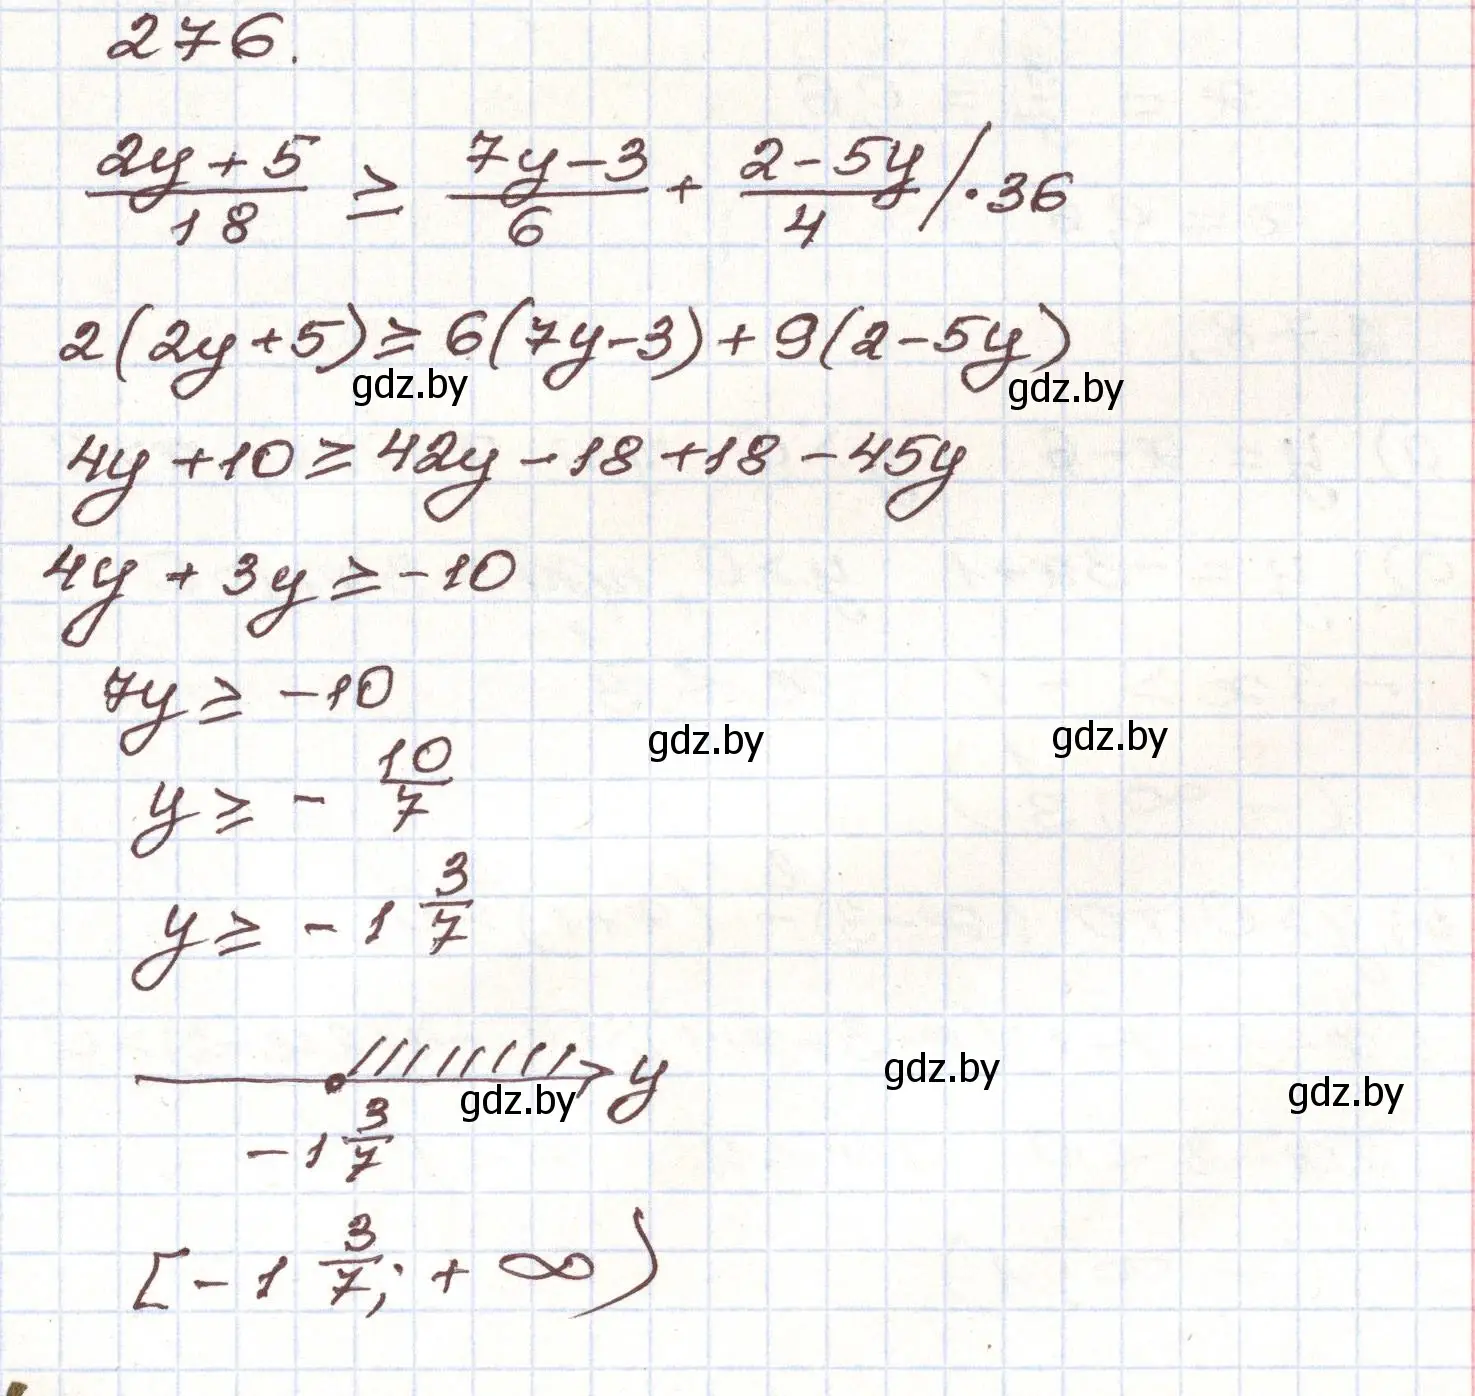 276.
(2y + 5)/18 ≥ (7y - 3)/6 + (2 - 5y)/4 / · 36
2(2y + 5) ≥ 6(7y - 3) + 9(2 - 5y)
gdz.by gdz.by
4y + 10 ≥ 42y - 18 + 18 - 45y
4y + 3y ≥ -10
7y ≥ -10
gdz.by gdz.by
y ≥ - 10/7
y ≥ - 1 3/7
y
gdz.by gdz.by gdz.by
- 1 3/7
[- 1 3/7; + ∞)